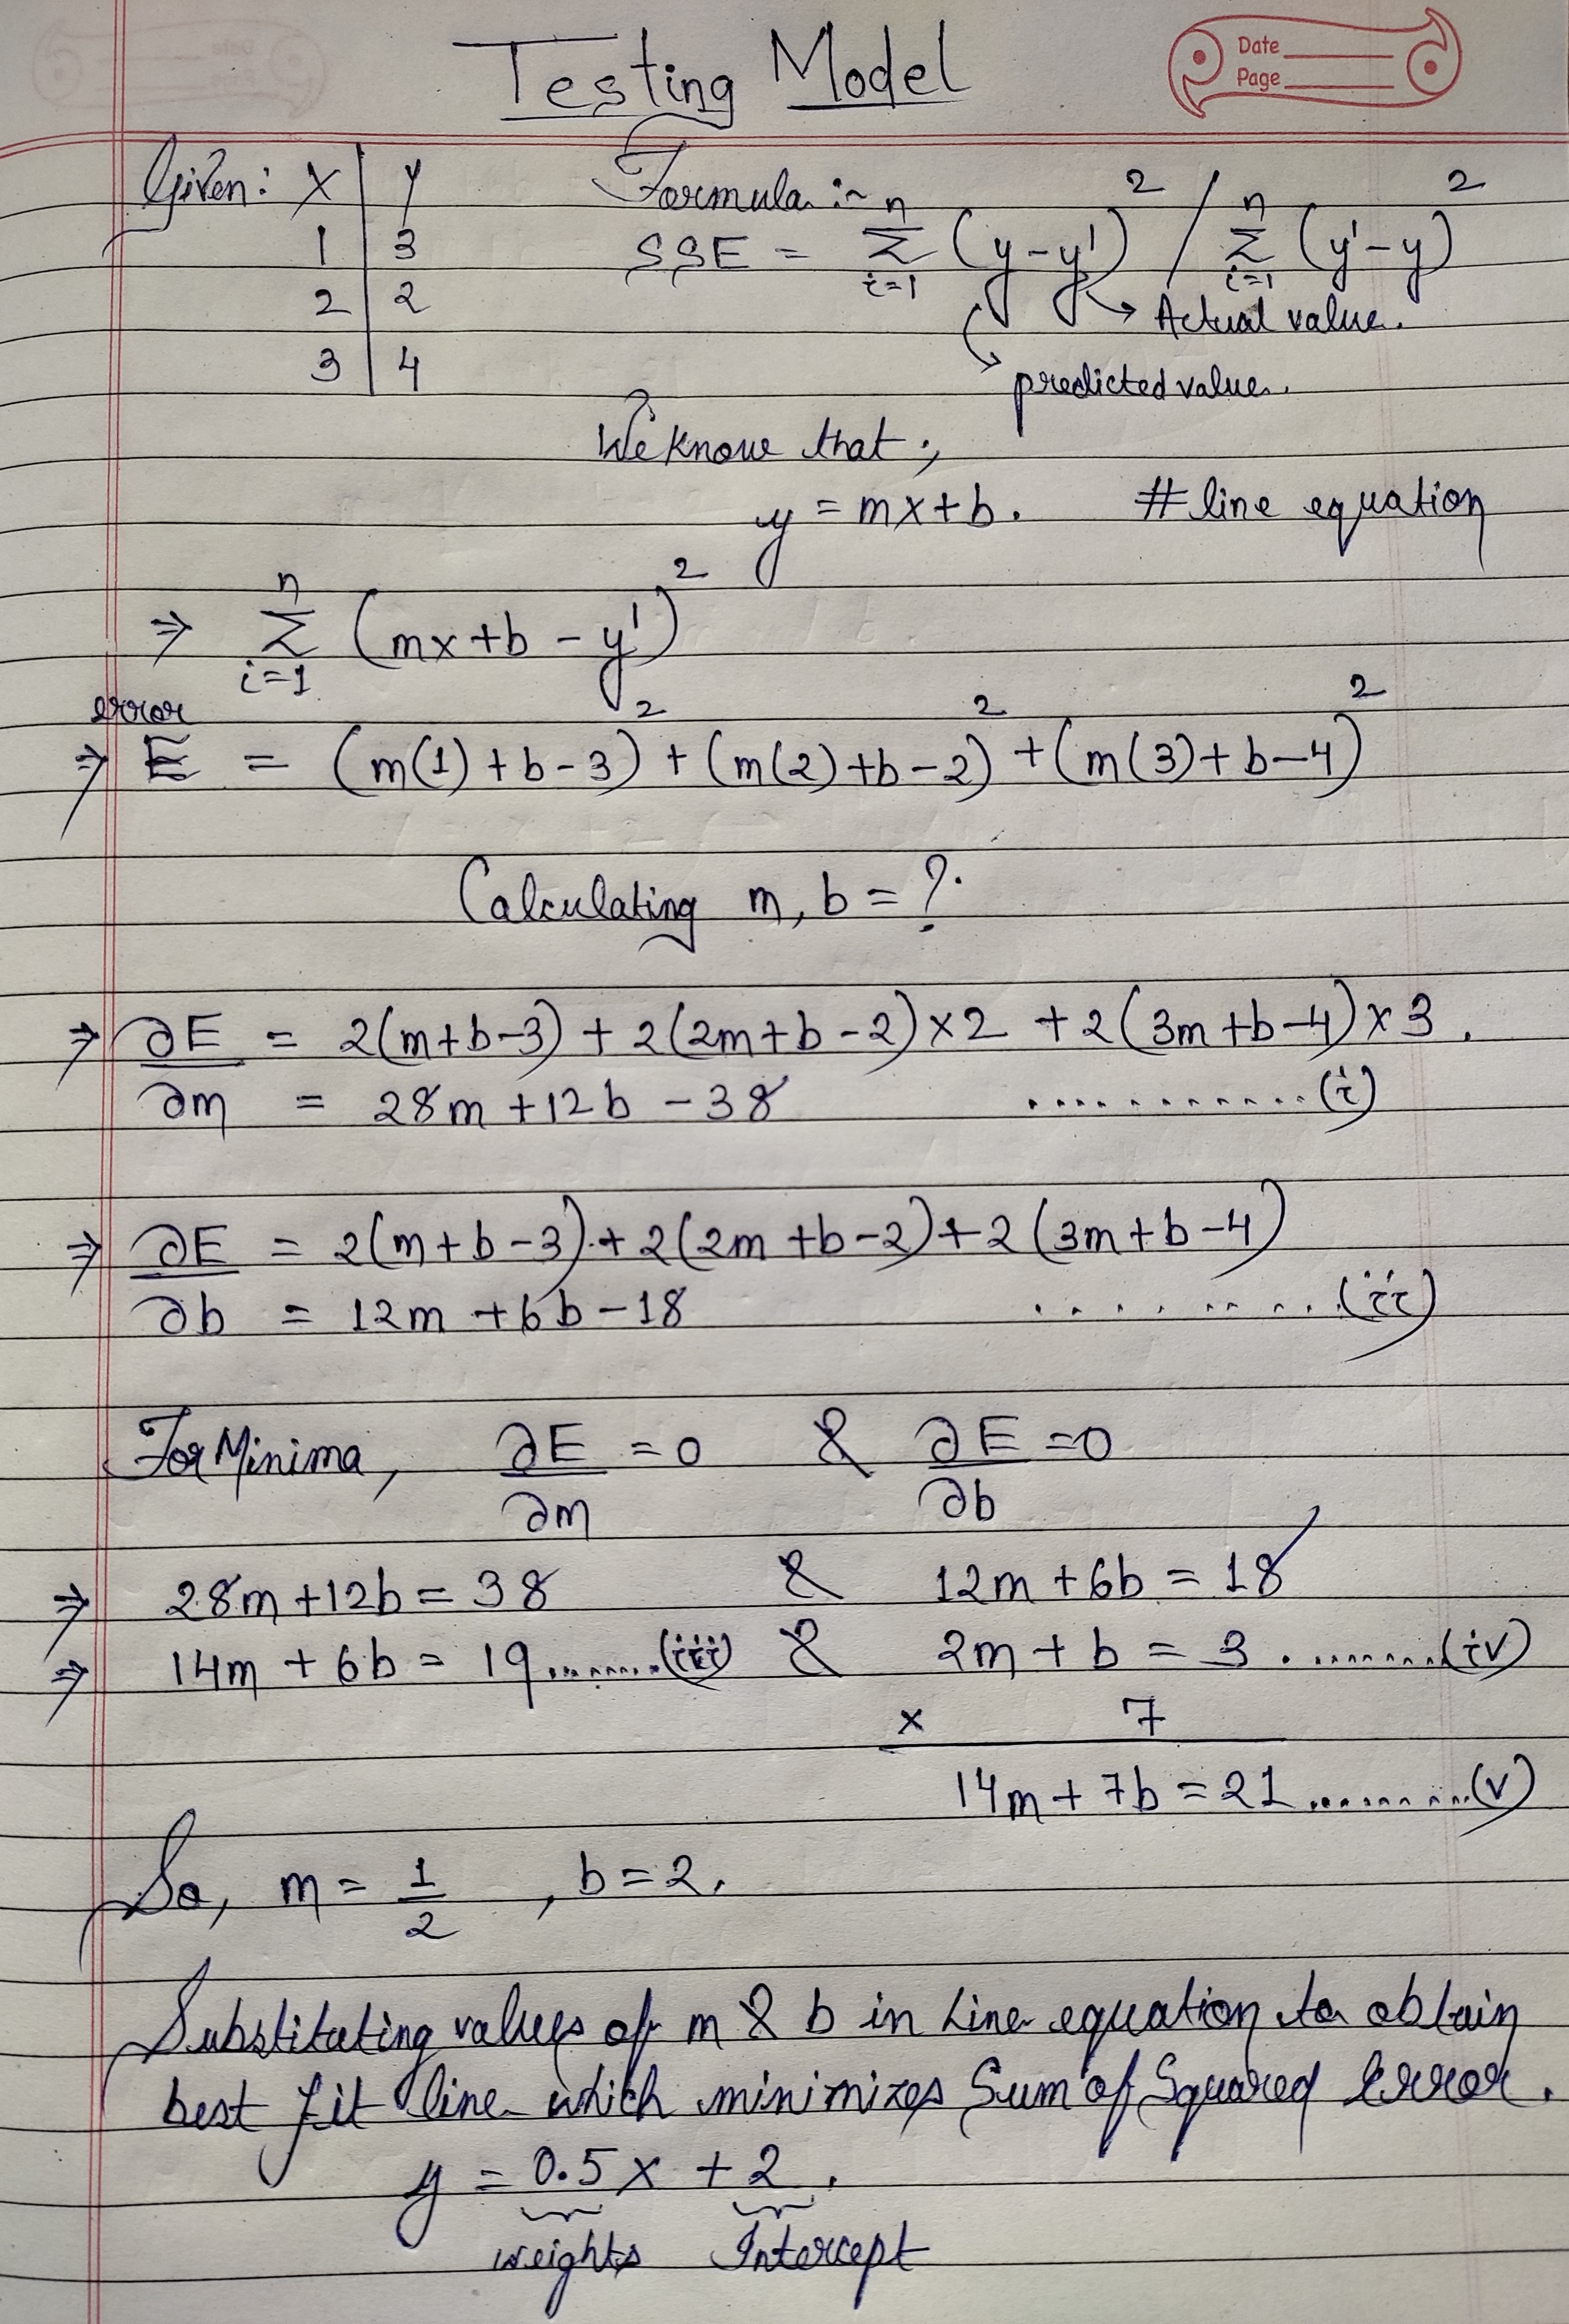 Testing Model
Date
Page
Given: X | Y
1 | 3
2 | 2
3 | 4
Formula :-
SSE = n Σ i=1 (y-y')² / n Σ i=1 (y'-y)²
Actual value.
predicted value.
We know that ;
y = mx+b. # line equation
⇒ n Σ i=1 (mx+b-y')²
error
⇒ E = (m(1)+b-3)² + (m(2)+b-2)² + (m(3)+b-4)²
Calculating m, b = ?
⇒ ∂E/∂m = 2(m+b-3) + 2(2m+b-2)×2 + 2(3m+b-4)×3.
= 28m+12b-38 ............(i)
⇒ ∂E/∂b = 2(m+b-3)+2(2m+b-2)+2(3m+b-4)
= 12m+6b-18 .........(ii)
For Minima, ∂E/∂m = 0 & ∂E/∂b = 0
⇒ 28m+12b = 38 & 12m+6b = 18
⇒ 14m+6b = 19........(iii) & 2m+b = 3.........(iv)
× 7
14m+7b = 21.........(v)
So, m = 1/2, b = 2.
Substitating values of m & b in Line equation to obtain
best fit line which minimizes Sum of Squared Error.
y = 0.5x + 2.
weights Intercept